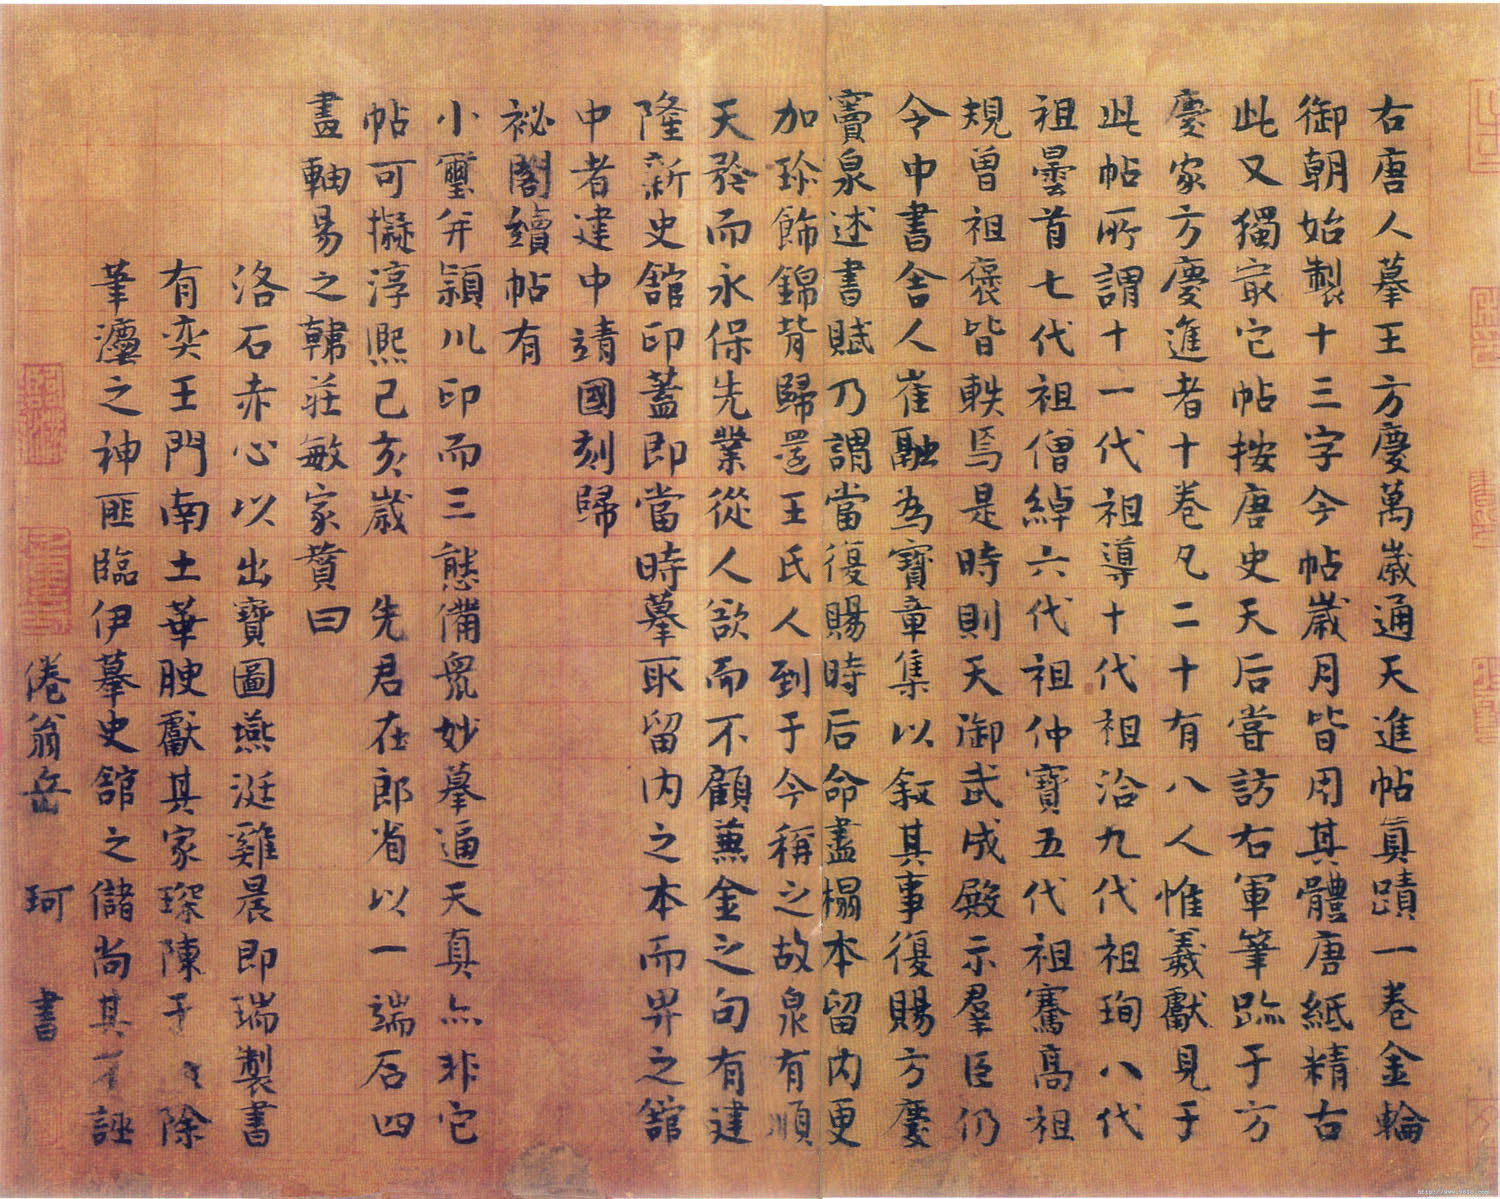 右唐人摹王方慶萬歲通天進帖真蹟一卷金輪
御朝始製十三字今帖歲月皆用其體唐紙精古
此又獨冣它帖按唐史天后嘗訪右軍筆跡于方
慶家方慶進者十卷凡二十有八人惟羲獻見于
此帖所謂十一代祖導十代祖洽九代祖珣八代
祖曇首七代祖僧綽六代祖仲寶五代祖騫高祖
規曾祖褒皆軼焉是時則天御武成殿示羣臣仍
令中書舍人崔融為寶章集以敘其事復賜方慶
竇泉述書賦乃謂當復賜時后命盡榻本留內更
加珎飾錦背歸還王氏人到于今稱之故泉有順
天矜而永保先業從人欲而不顧蕪金之句有建
隆新史館印蓋即當時摹取留內之本而畀之館
中者建中靖國刻歸
祕閣續帖有
小璽并潁川印而三態備眾妙摹逼天真亦非它
帖可擬淳熙己亥歲 先君在郎省以一端石四
畫軸易之韓莊敏家贊曰
洛石赤心以出寶圖燕涎雞晨即瑞製書
有奕王門南土華腴獻其家琛陳于 除
筆瀍之神匪臨伊摹史館之儲尚其 誣
倦翁岳 珂 書